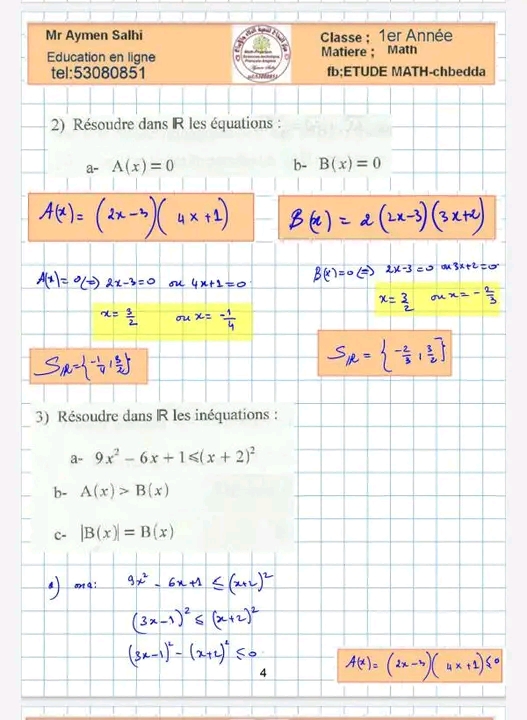 Mr Aymen Salhi
Education en ligne
tel:53080851
Classe ; 1er Année
Matiere ; Math
fb;ETUDE MATH-chbedda
2) Résoudre dans ℝ les équations :
a- A(x) = 0
b- B(x) = 0
A(x) = (2x-3)(4x+1)
B(x) = 2(2x-3)(3x+2)
A(x) = 0 (=) 2x-3=0 ou 4x+1=0
x = 3/2 ou x = -1/4
S_ℝ = {-1/4 ; 3/2}
B(x)=0 (=) 2x-3=0 ou 3x+2=0
x = 3/2 ou x = -2/3
S_ℝ = {-2/3 ; 3/2}
3) Résoudre dans ℝ les inéquations :
a- 9x² - 6x + 1 ⩽ (x + 2)²
b- A(x) > B(x)
c- |B(x)| = B(x)
a) ona: 9x² - 6x + 1 ≤ (x+2)²
(3x-1)² ≤ (x+2)²
(3x-1)² - (x+2)² ≤ 0
4
A(x) = (2x-3)(4x+1) ≤ 0